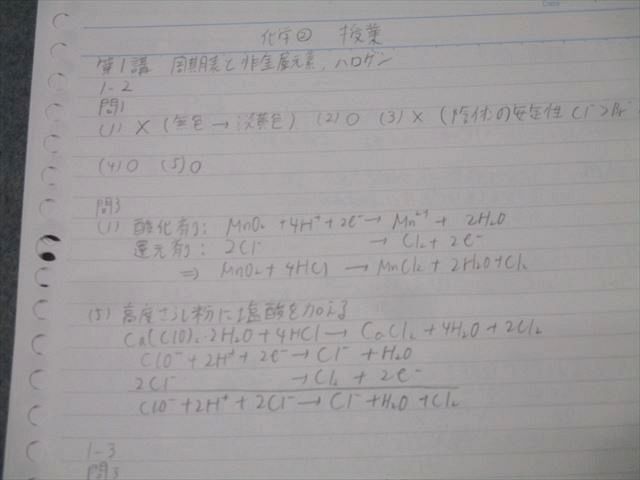 化学② 授業
第1講 周期表と非金属元素, ハロゲン
1-2
問1
(1) × (無色 → 淡黄色) (2) ○ (3) × (陰イオンの安定性 Cl⁻ > Br⁻
(4) ○ (5) ○
問3
(1) 酸化剤: MnO₂ + 4H⁺ + 2e⁻ → Mn²⁺ + 2H₂O
還元剤: 2Cl⁻ → Cl₂ + 2e⁻
⇒ MnO₂ + 4HCl → MnCl₂ + 2H₂O + Cl₂
(5) 高度さらし粉に塩酸を加える
Ca(ClO)₂·2H₂O + 4HCl → CaCl₂ + 4H₂O + 2Cl₂
ClO⁻ + 2H⁺ + 2e⁻ → Cl⁻ + H₂O
2Cl⁻ → Cl₂ + 2e⁻
ClO⁻ + 2H⁺ + 2Cl⁻ → Cl⁻ + H₂O + Cl₂
1-3
問3